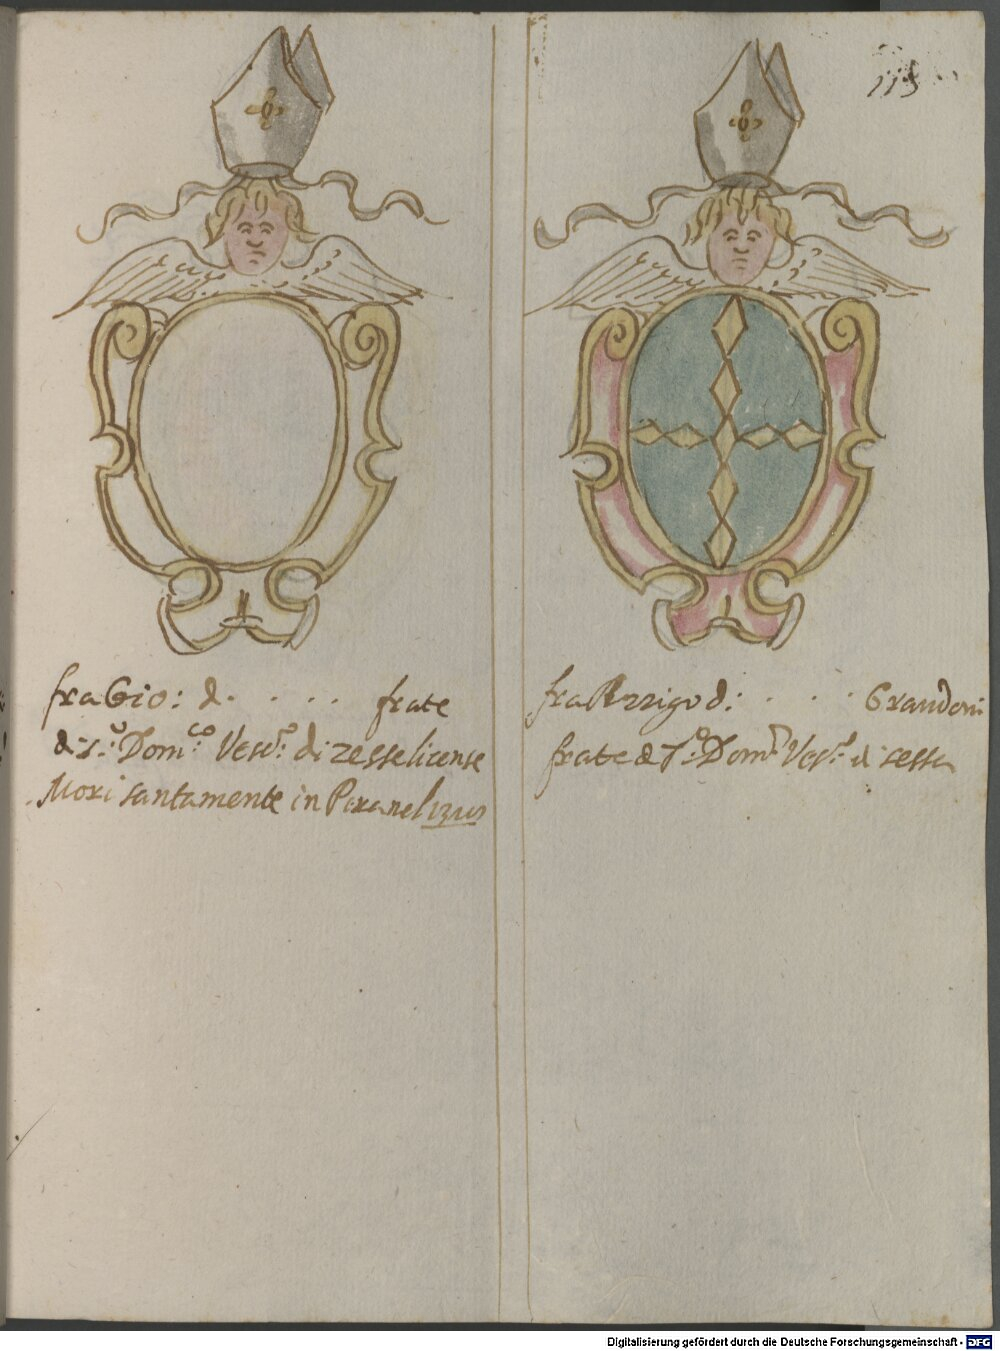 113
fra Gio: d. . . . . frate
di S.º Dom.co Vesc.º di zesselicense
Mori santamente in
fra Arrigo d: . . . . Grandoni
frate de S.º Dom.co Vesc.º di sessa
Digitalisierung gefördert durch die Deutsche Forschungsgemeinschaft - DFG